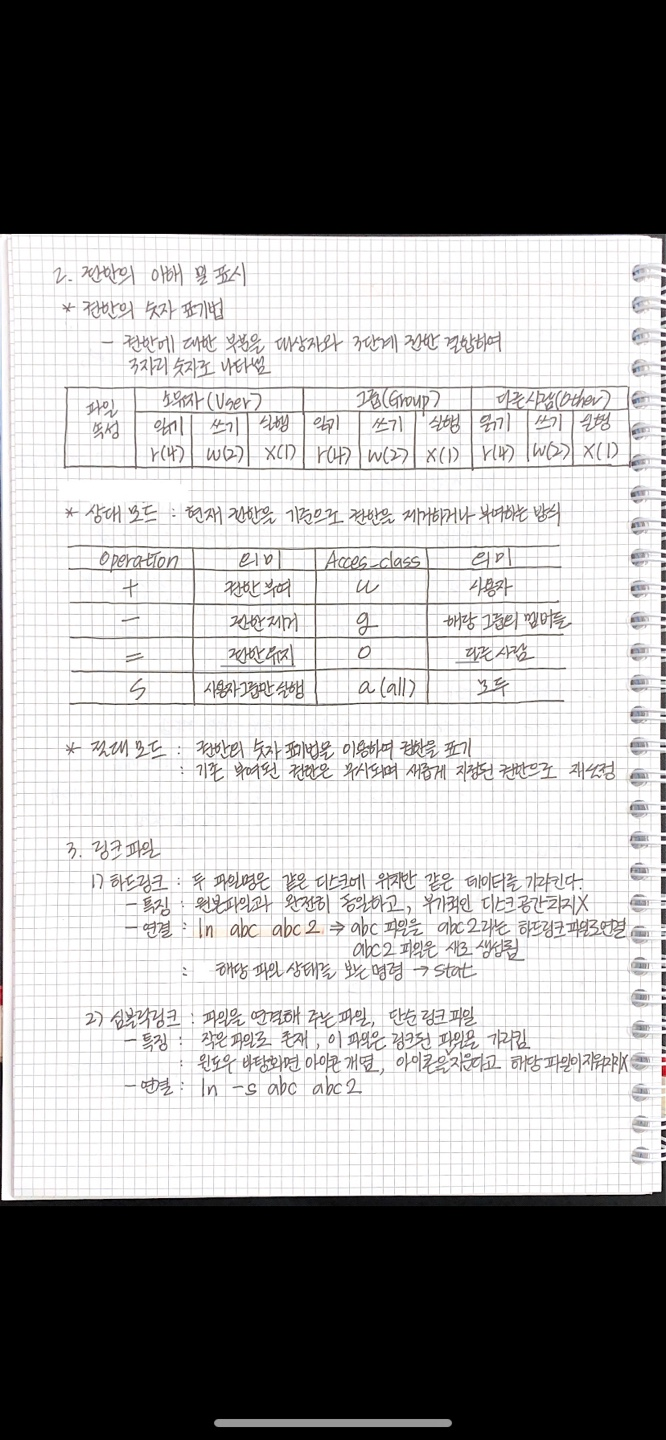 2. 권한의 이해 및 표시
* 권한의 숫자 표기법
- 권한에 대한 부분을 대상자와 3단계 권한 결합하여
3자리 숫자로 나타냄
파일 속성 소유자(User) 그룹(Group) 다른사람(Other)
읽기 쓰기 실행 읽기 쓰기 실행 읽기 쓰기 실행
r(4) w(2) x(1) r(4) w(2) x(1) r(4) w(2) x(1)
* 상대 모드 : 현재 권한을 기준으로 권한을 제거하거나 부여하는 방식
Operation 의미 Acces_class 의미
+ 권한 부여 u 사용자
- 권한 제거 g 해당 그룹의 멤버들
= 권한 유지 o 다른 사람
s 사용자그룹만 실행 a(all) 모두
* 절대 모드 : 권한의 숫자 표기법을 이용하여 권한을 표기
: 기존 부여된 권한은 무시되며 새롭게 지정된 권한으로 재설정
3. 링크 파일
1) 하드링크 : 두 파일명은 같은 디스크에 위치한 같은 데이터를 가리킨다.
- 특징 : 원본파일과 완전히 동일하고, 부가적인 디스크공간 차지X
- 연결 : ln abc abc2 ⇒ abc 파일을 abc2라는 하드링크 파일로 연결
abc2 파일은 새로 생성됨
: 해당 파일 상태를 보는 명령 → stat
2) 심볼릭링크 : 파일을 연결해 주는 파일, 단순 링크 파일
- 특징 : 작은 파일로 존재, 이 파일은 링크된 파일을 가리킴
: 윈도우 바탕화면 아이콘 개념, 아이콘을 지운다고 해당 파일이 지워지지X
- 연결 : ln -s abc abc2